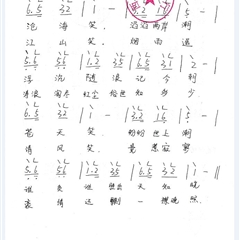 6.5 32 | 1 - | 5 - |
沧 海 笑, 滔滔两岸 潮
江 山 笑, 烟雨遥
5.6 56 | 1.2 35 | 6.5 32 1 | 2 - |
浮沉 随 浪 记 今 朝
涛浪 淘尽 红尘 俗世 知 多 少
6.5 32 | 1 - | 3.2 16 | 5 - |
苍 天 笑, 纷纷世上 潮
清 风 笑, 竟惹寂寥
5.6 56 | 1.2 35 | 6.5 32 | 1 - ||
谁 负 谁 胜出 天 知 晓
豪 情 还 剩 一 襟晚照.